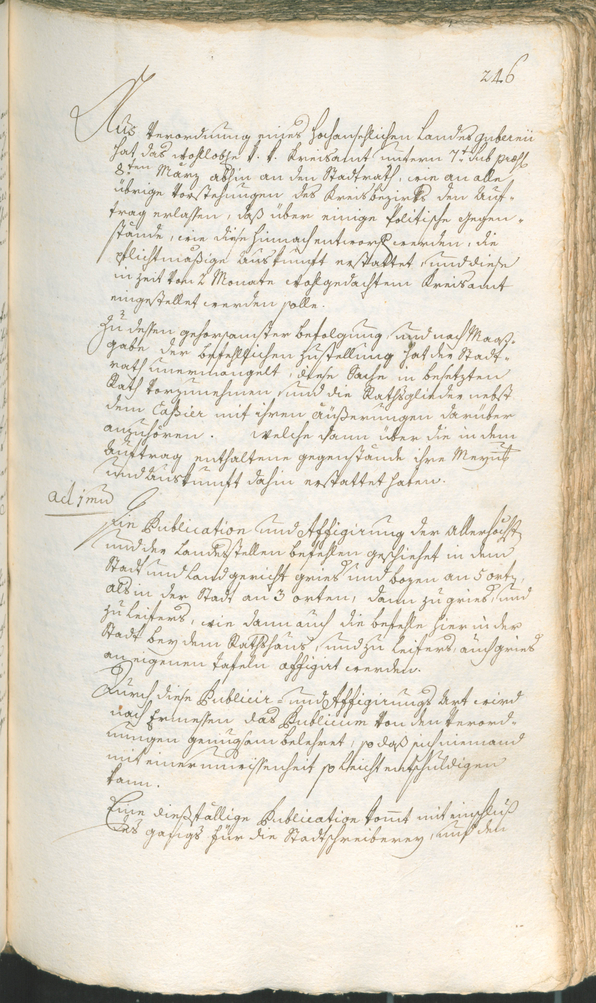 246
Aus Verordnung eines Hochansehlichen Landes Gubernii
hat das wohllobl. k. k. Kreisamt unterm 7t. sub præs.
8ten März abhin an den Stadtrath, wie an alle
übrige Vorstehungen des Kreisbezirks den Auf-
trag erlassen, daß über einige Politische Gegen-
stände, wie diese hinnach entworfen werden, die
pflichtmäßige Auskunft erstattet, und diese
in Zeit von 2 Monate wohlgedachtem Kreisamt
eingestellet werden solle.
Zu dessen gehorsamster Befolgung, und nach Maas-
gabe der befehlichen Zustellung hat der Stadt-
rath unermangelt, diese Sache in besetzten
Rath vorzunehmen, und die Rathsglieder nebst
dem Cassier mit ihren äußerungen darüber
anzuhören. Welche dann über die in dem
Auftrag enthaltene gegenstände ihre Meynung
und Auskunft dahin erstattet haben.
ad 1mu
Die Publication und Affigirung der Allerhöchst
und der Landesstellen befehlen geschiehet in dem
Stadt und Landgericht gries und bozen an 5 orten,
als in der Stadt an 3 orten, dann zu gries, und
zu leifers, wie dann auch die befehle hier in der
Stadt bey dem Rathshaus, und zu leifers, auch gries
an eigenen tafeln affigirt werden.
Durch diese Publicir- und Affigirungs Art wird
nach Ermessen das Publicum von den Verord-
nungen genugsam belehret, so daß sich niemand
mit einer unwissenheit so leicht entschuldigen
kann.
Eine dießfällige Publication kommt mit einschluß
des für die Stadtschreiberey, auf den